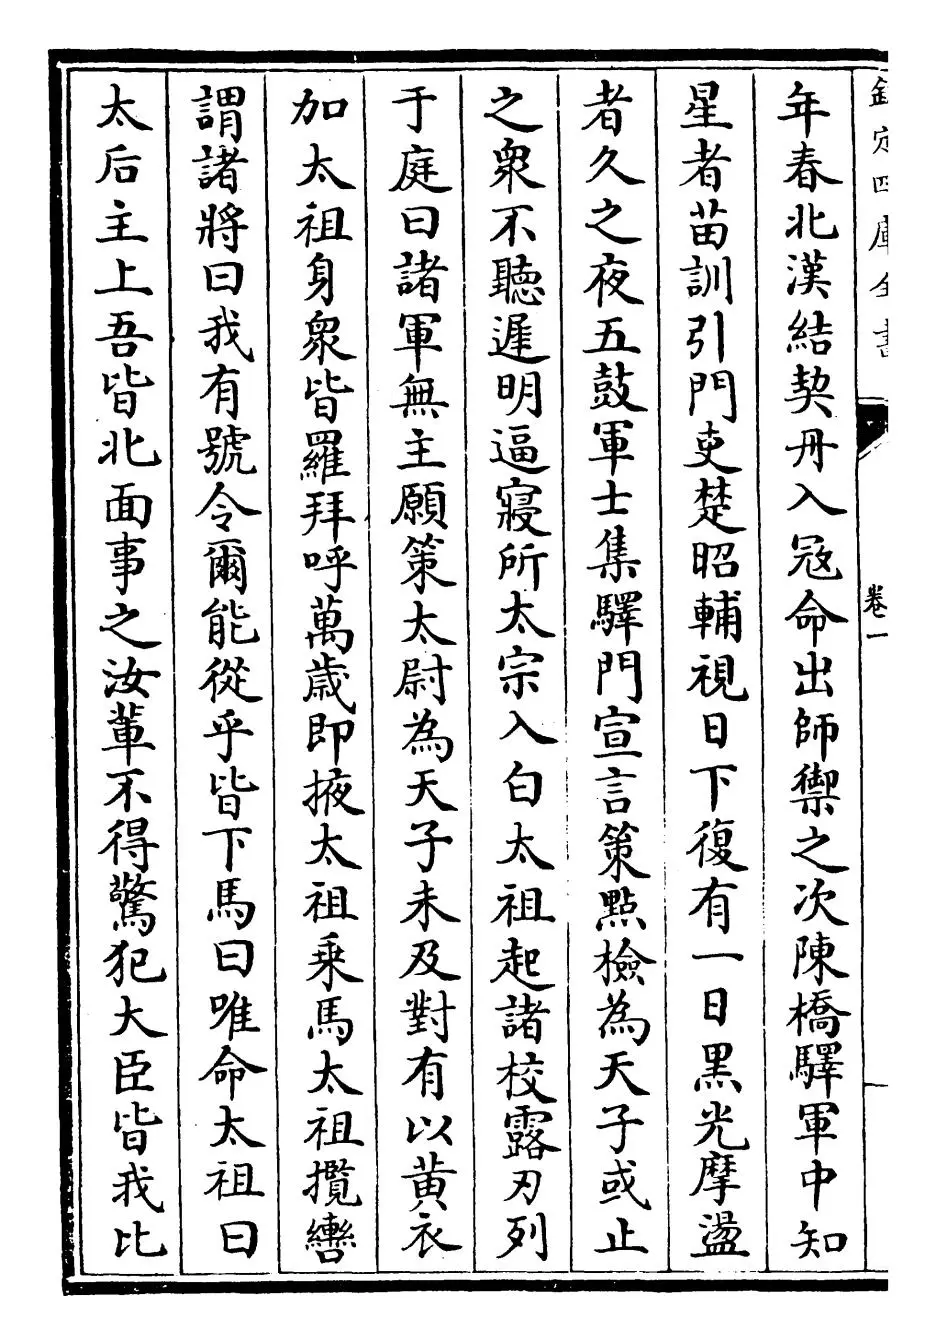 欽定四庫全書
卷一
年春北漢結契丹入冦命出師禦之次陳橋驛軍中知
星者苗訓引門吏楚昭輔視日下復有一日黑光摩盪
者久之夜五鼓軍士集驛門宣言策點檢為天子或止
之衆不聽遲明逼寢所太宗入白太祖起諸校露刃列
于庭曰諸軍無主願策太尉為天子未及對有以黃衣
加太祖身衆皆羅拜呼萬歲即掖太祖乗馬太祖攬轡
謂諸將曰我有號令爾能從乎皆下馬曰唯命太祖曰
太后主上吾皆北面事之汝軰不得驚犯大臣皆我比